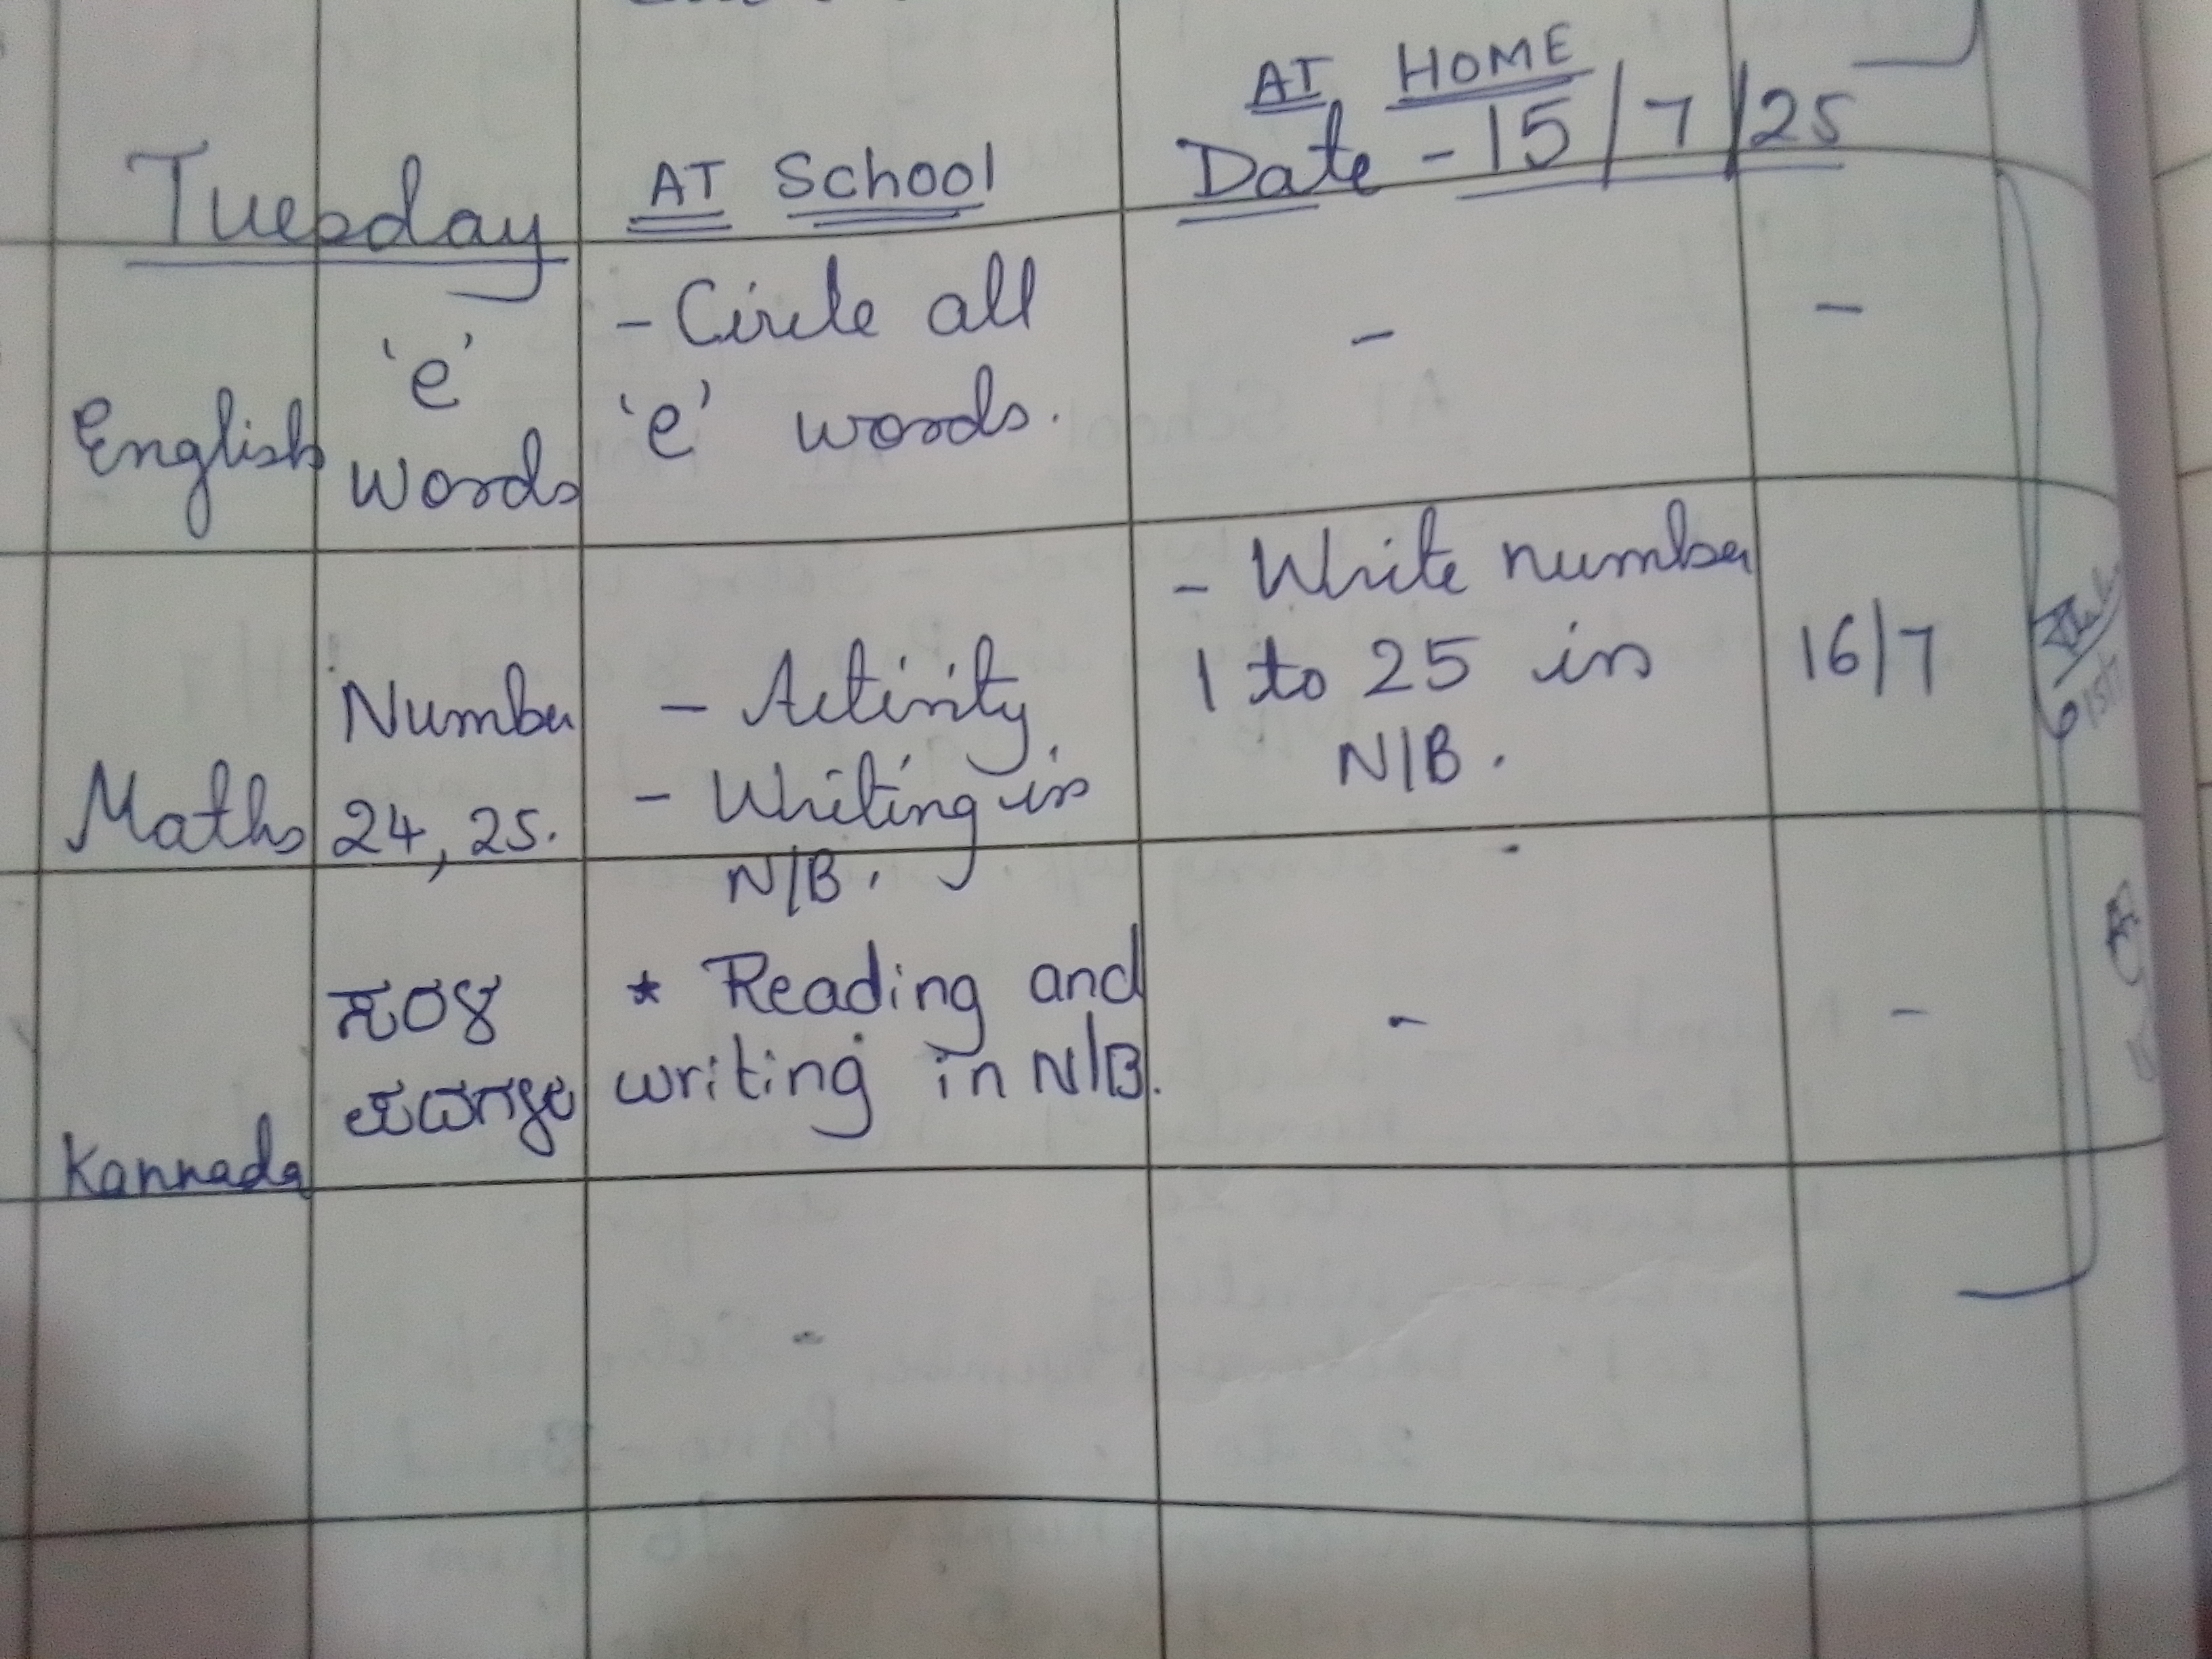 AT HOME
Tuesday AT School Date - 15/7/25
English 'e' words - Circle all 'e' words. - -
Maths Number 24, 25. - Activity - Writing in N/B. - Write number 1 to 25 in N/B. 16/7
Kannada ಸರಳ ಪದಗಳು * Reading and writing in N/B. - -